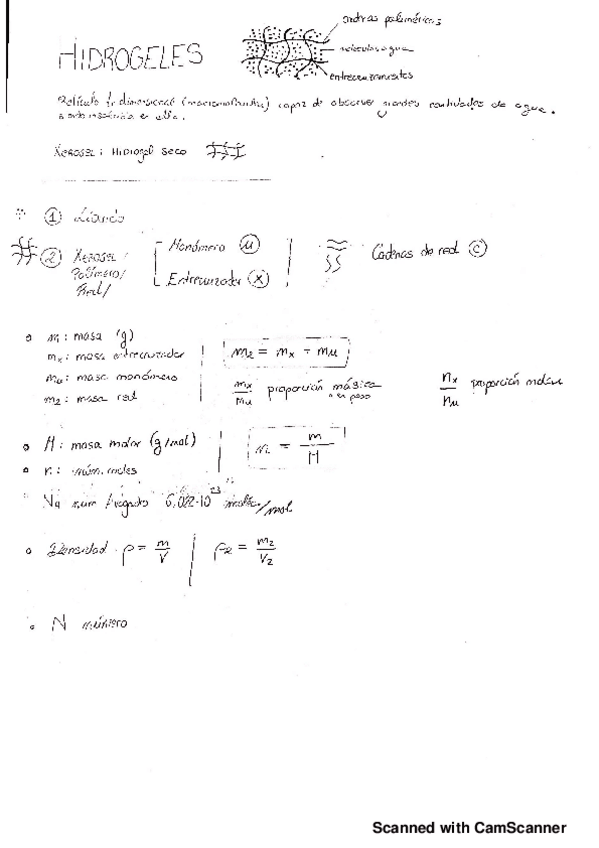 HIDROGELES
cadenas poliméricas
moléculas agua
entrecruzamientos
Retículo tridimensional capaz de absorber grandes cantidades de agua.
XEROGEL: HIDROGEL SECO
① Líquido
② XEROGEL / Polímero / Red / Monómero (u) Entrecruzador (x) Cadenas de red (c)
m: masa (g)
mx: masa entrecruzador
m2 = mx + mu
mu: masa monómero
mx/mu proporción másica o en peso
nx/nu proporción molar
m2: masa red
M: masa molar (g/mol)
n = m/M
n: núm. moles
NA num Avogadro 6,022·10^23 /mol
Densidad ρ = m/V ρ2 = m2/V2
N número
Scanned with CamScanner